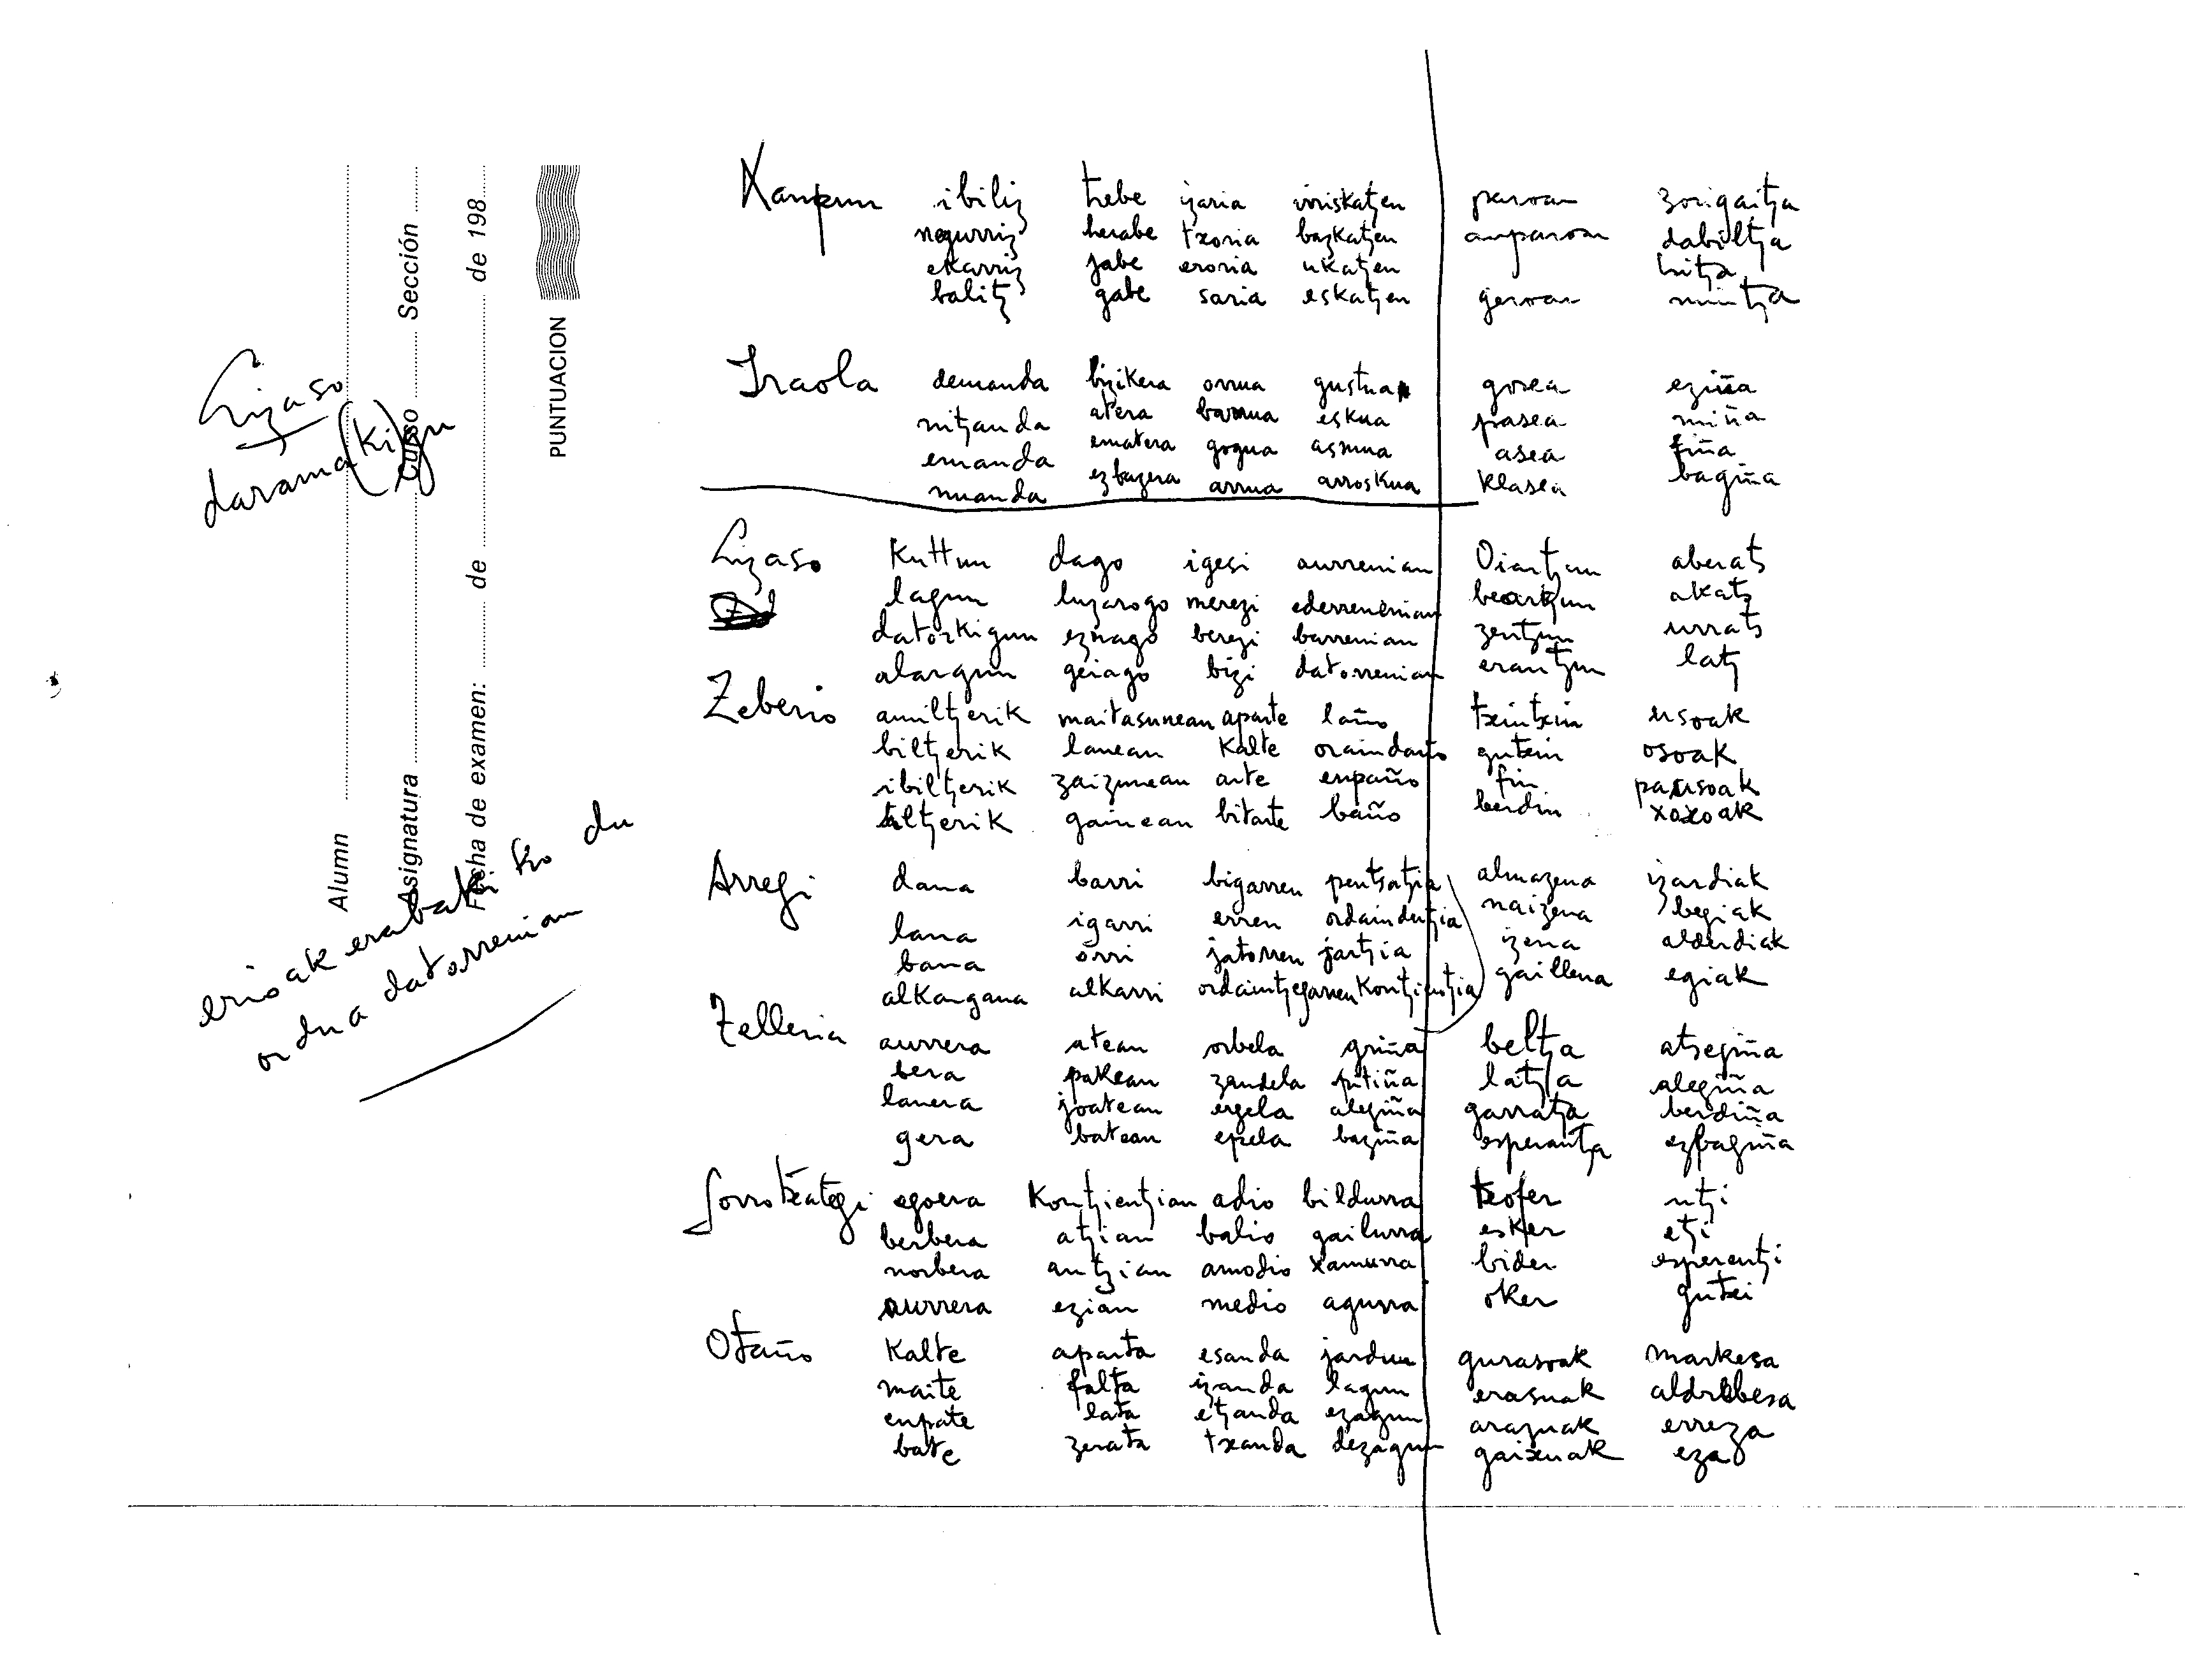 Alumn
Asignatura Curso Sección
Fecha de examen: de de 198
PUNTUACION
Lizaso
darama(ki)gu
erioak erabakiko du
ordua datorrenian
Xanpun ibiliz trebe izaria irriskatzen paroan zorigaitza
negurriz herabe txoria bazkatzen anparoan dabiltza
ekarriz jabe eroria ukatzen hitza
balitz gabe saria eskatzen geroan mintza
Iraola demanda bizikera orrua gustua gosea eziña
nitzanda atera barrua eskua pasea miña
emanda ematera gogua asmua asea fiña
manda ezbazera arrua arroskua klasea bagiña
Lizaso kuttun dago igesi aurrenian Oiartzun aberats
lagun luzarogo merezi ederrenenian beartzun akats
datozkigun eznago berezi barrenian zentzun urrats
alargun geiago bizi datorrenian erantzun latz
Zeberio amiltzerik maitasunean aparte laño txintxin usoak
biltzerik lanean kalte oraindaño gutxin osoak
ibiltzerik zaizunean arte enpaño fin pausoak
iltzerik gainean bitarte baño berdin xoxoak
Arregi dana barri bigarren pentsatzia almazena izardiak
lana igarri erren ordaindutzia naizena begiak
bana orri jatorren jartzia izena alderdiak
alkargana alkarri ordaintzegarren kontzientzia gaillena egiak
Zelleria aurrera atean orbela griña beltza atsegiña
bera pakean zaudela pitiña latza alegiña
lanera joatean ergela alegiña garratza berdiña
gera batean epela bagiña esperantza ezbagiña
Sorrotxategi egoera kontzientzian adio bildurra txofer utzi
berbera atzian balio gailurra esker etzi
norbera antzian amodio xamurra bider esperantzi
aurrera ezian medio agurra oker gutxi
Otaño kalte aparta esanda jardun gurasoak markesa
maite falta izanda lagun erasuak aldrebesa
enpate lata etzanda ezagun arazuak erreza
bate zerata txanda dezagun gaixuak eza